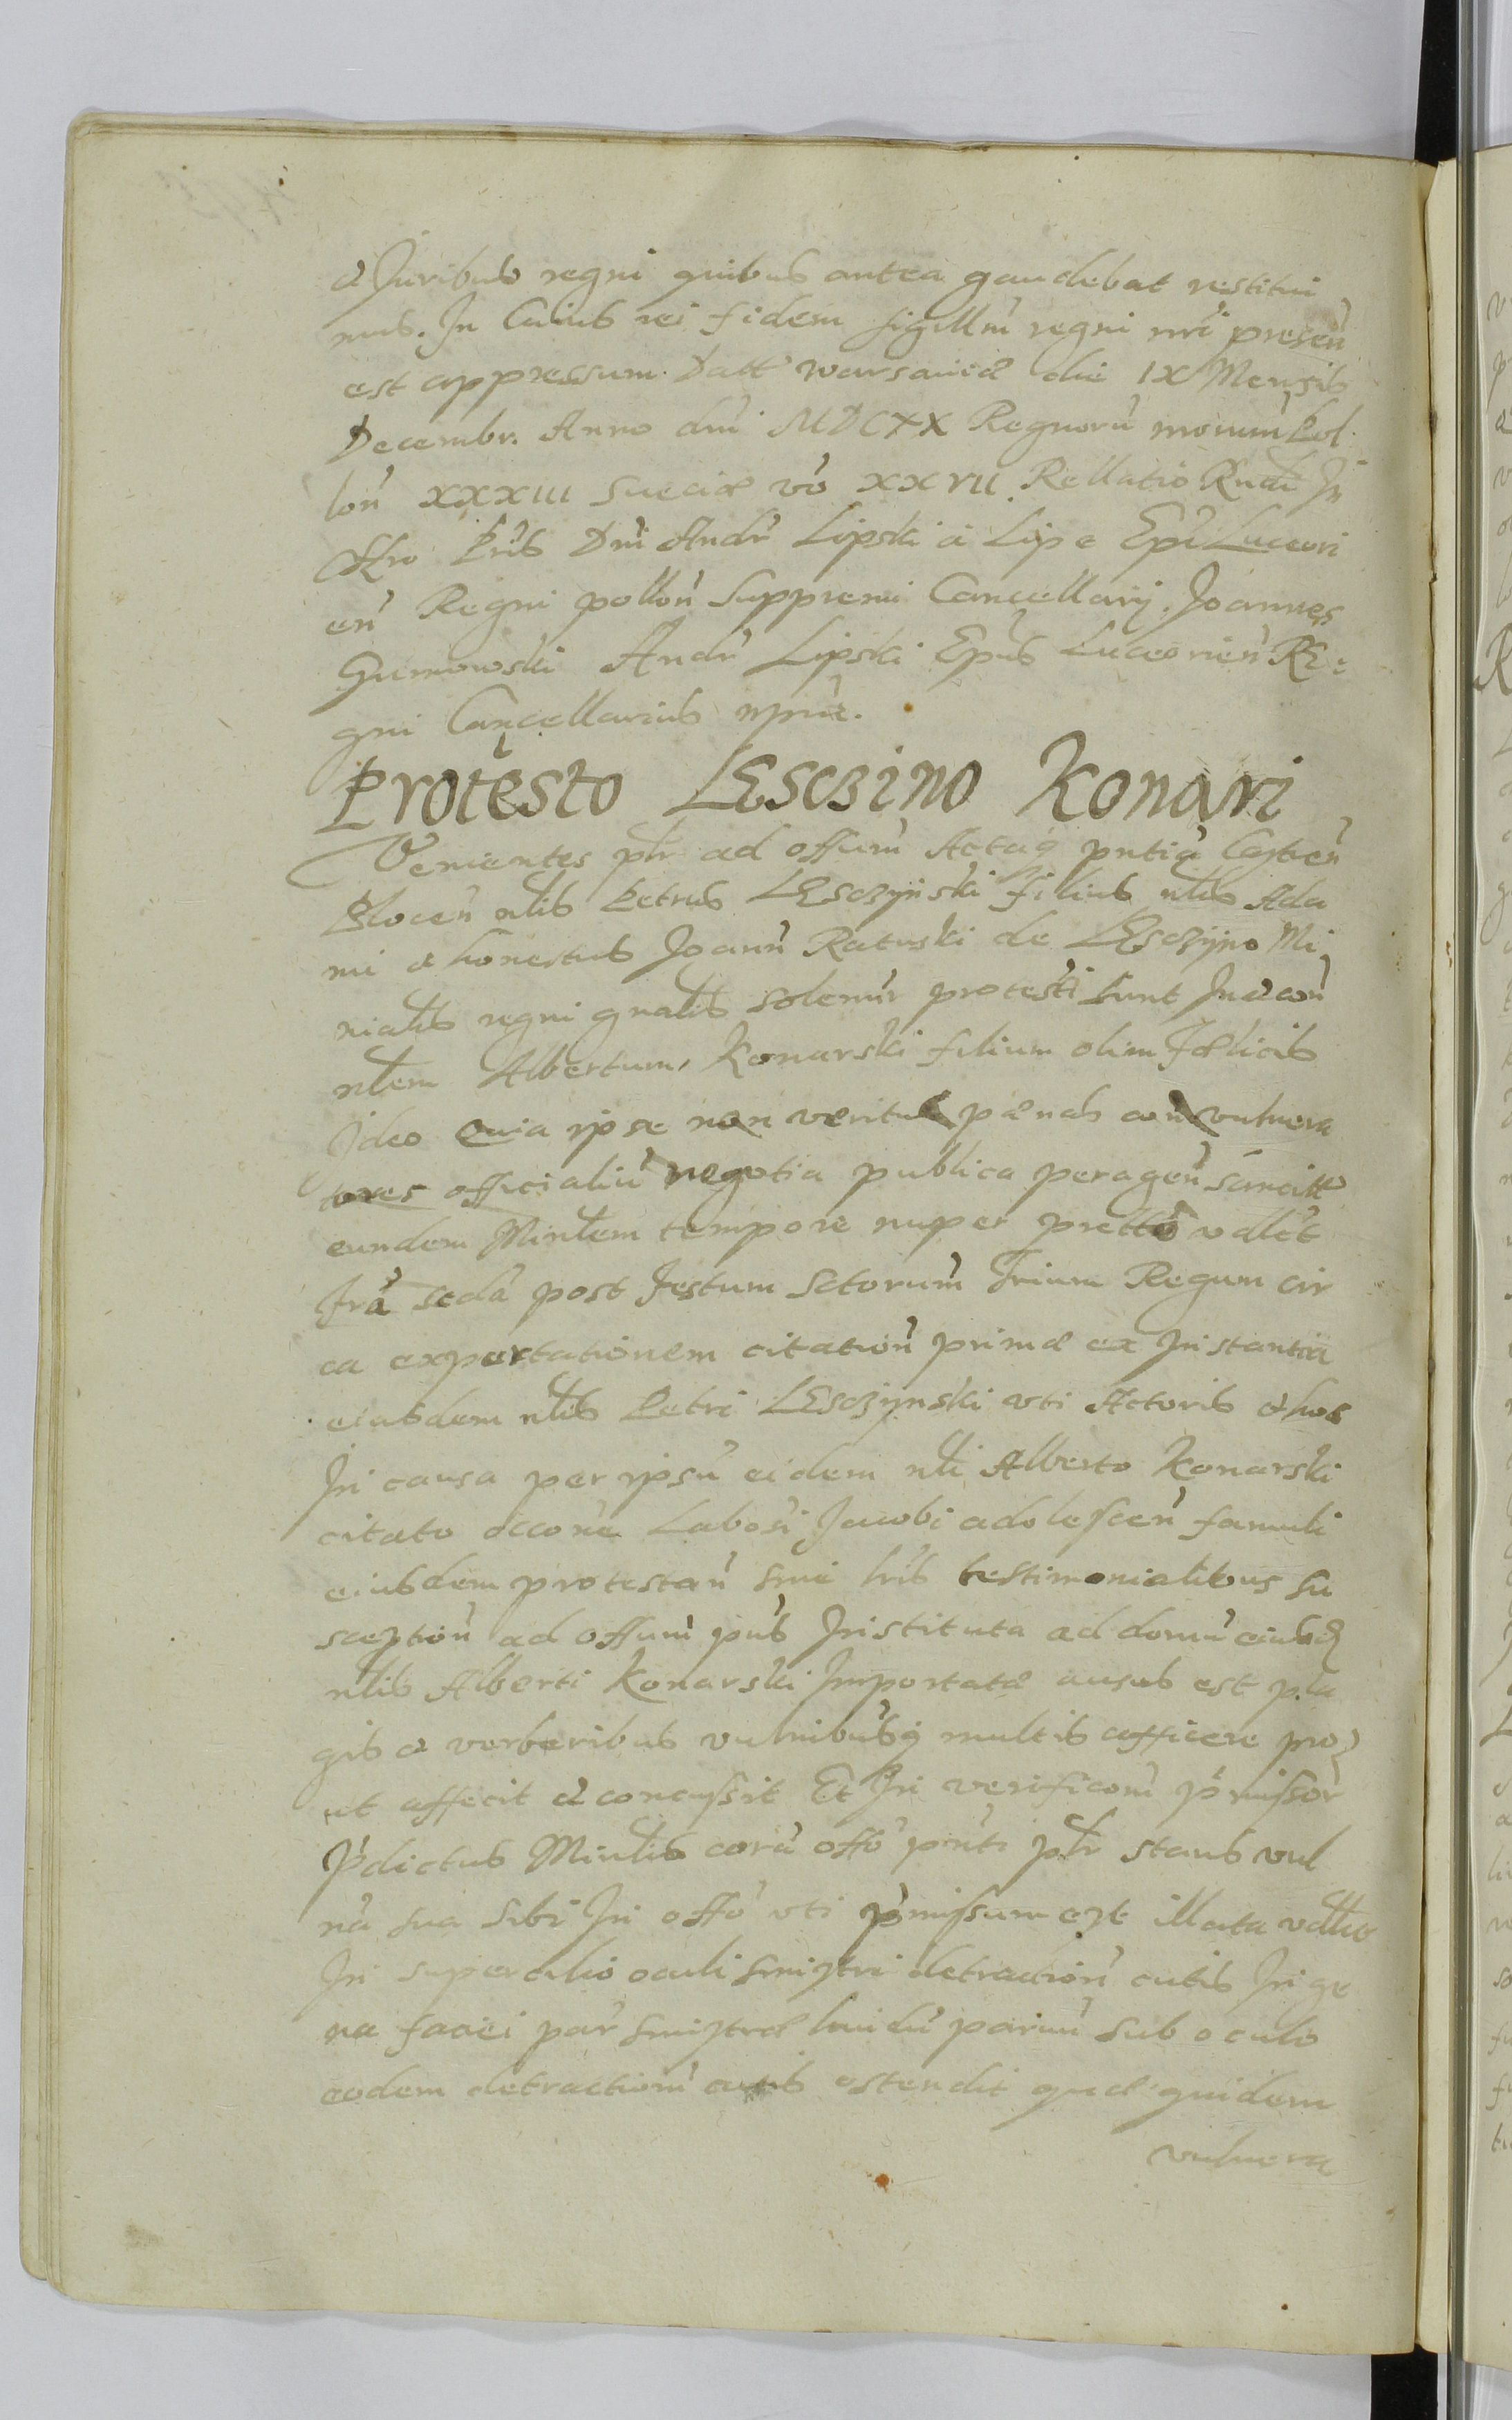 & Juribus regni quibus antea gaudebat restitui
mus. In Cuius rei fidem sigillũ regni nri presen̄
est appressum. Datt Warsaviæ die IX Mensis
Decembr. Anno dni MDCXX Regnorũ nrorum Pol
lon̄ XXXIII Sueciæ vo XXVII Rellatio Rndi In
Chro Pris Dni Andr̄ Lipski a Lipe Epi Luceori
en̄ Regni pollon̄ Suppremi Cancellarij. Joannes
Gumowski Andr̄ Lipski Epus Luceorien̄ RE:
gni Cancellarius mpria.
Protesto LEsczino Konari
Venientes plr ad offum Actaq pntia Castren̄
Plocen̄ nlis Petrus LEsczÿnski filius nlis Ada
mi & honestus Joann̄ Ratuski de LEsczÿno Mi
nialis regni gnalis solenür protesti sunt In & con̄
nlem Albertum Konarski filium olim Fælicis
Ideo Quia ipse non veritus pænas con̄ vulnera
tores officialiũ negotia publica peragen̄ sancitt
eundem Minlem tempore nuper pretto vdlt
fra scda post festum Sctorum Trium Regum cir
ca exportationem citation̄ primæ ex Instantia
eiusdem nlis Petri LEsczÿnski vti Actoris & hoc
In causa per ipsũ eidem nli Alberto Konarski
citato occone Labosi Jacobi adolescen̄ famuli
eiusdem protestan̄ sine lris testimonialibus su
sception̄ ad offum pns Instituta ad domũ eiusd
nlis Alberti Konarski Importatæ ausus est pla
gis & verberibus vulnibusq multis afficere pro
ut affecit & concussit Et In verificom p̄missor
P̄dictus Minlis corã offo pnti plr stans vul
nã sua sibi In offo vti p̄missum est illata vdlt
In supercilio oculi sinistri detraction̄ cutis In ge
na faciei par sinistræ lividũ parum sub oculo
eodem detraction̄ cutis ostendit quæ quidem
vulnera